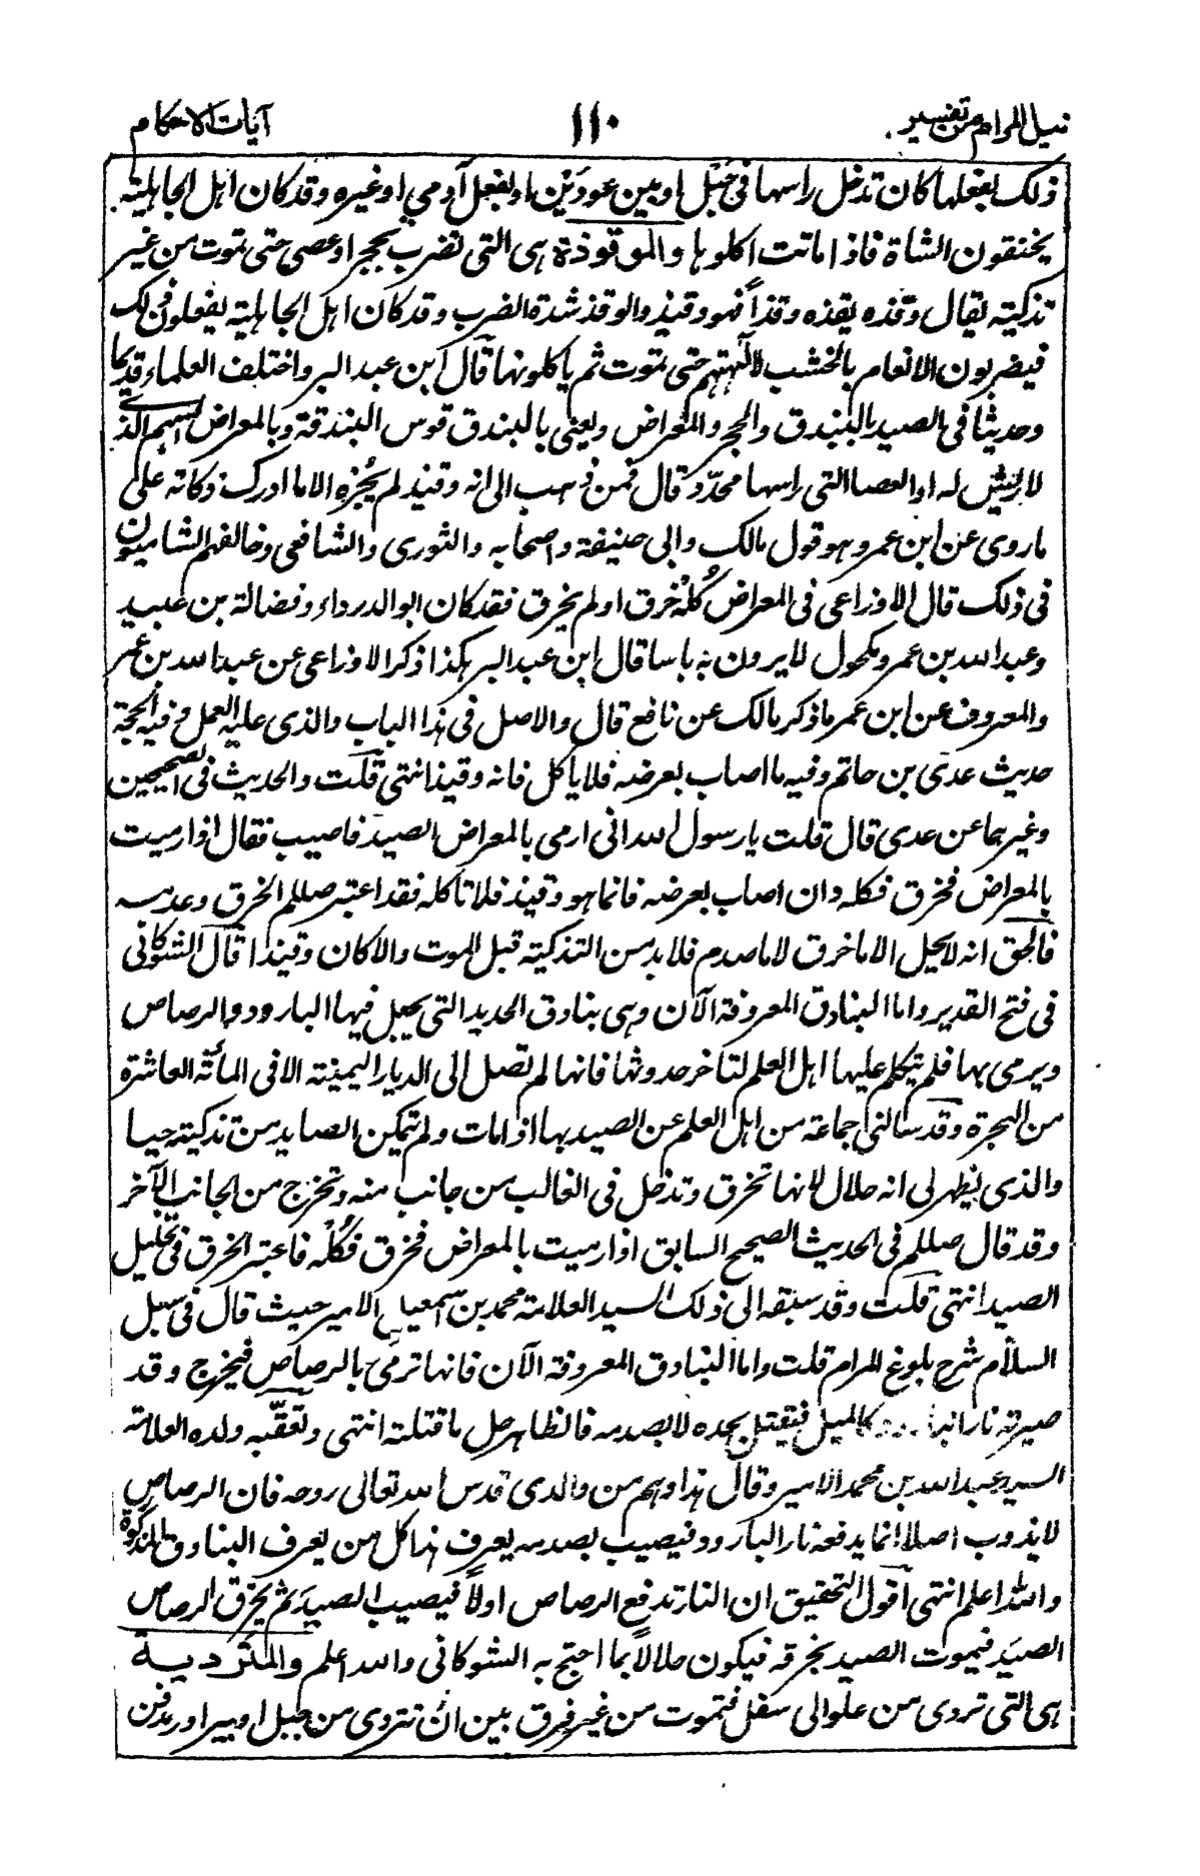 نيل المرام من تفسير
١١٠
آيات الاحكام
ذلك بفعلها كان تدخل راسها فى حَبْل او بين عودَيْن او بفعل آدمي او غيره وقد كان اهل الجاهلية
يخنقون الشاة فاذا ماتت اكلوها والموقوذة هى التى تضرب بحجر او عصى حتى تموت من غير
تذكية يقال وقذه يقذه وقذاً فهو وقيذ والوقذ شدة الضرب وقد كان اهل الجاهلية يفعلون ذلك
فيضربون الانعام بالخشب لآلهتهم حتى تموت ثم ياكلونها قال ابن عبد البر واختلف العلماء قديما
وحديثا فى الصيد بالبندق والحجر والمعراض ويعنى بالبندق قوس البندقة وبالمعراض السهم الذى
لا ريش له او العصا التى راسها محدّد قال فمن ذهب الى انه وقيذ لم يُجزه الا ما ادرك ذكاته على
ما روى عن ابن عمر وهو قول مالك وابى حنيفة واصحابه والثورى والشافعى وخالفهم الشاميون
فى ذلك قال الاوزاعى فى المعراض كُلْهُ خرق او لم يخرق فقد كان ابو الدرداء وفضالة بن عبيد
وعبد الله بن عمر ومكحول لا يرون به باسا قال ابن عبد البر هكذا ذكر الاوزاعى عن عبد الله بن عمر
والمعروف عن ابن عمر ما ذكر مالك عن نافع قال والاصل فى هذا الباب والذى عليه العمل وفيه الحجة
حديث عدى بن حاتم وفيه ما اصاب بعرضه فلا ياكل فانه وقيذ انتهى قلت والحديث فى الصحيحين
وغيرهما عن عدى قال قلت يا رسول الله انى ارمى بالمعراض الصيد فاصيب فقال اذا رميت
بالمعراض فخرق فكله وان اصاب بعرضه فانما هو وقيذ فلا تاكله فقد اعتبر صللم الخرق وعدمه
فالحق انه لا يحل الا ما خرق لا ما صدم فلا بد من التذكية قبل الموت والا كان وقيذا قال الشوكانى
فى فتح القدير واما البنادق المعروفة الآن وهى بنادق الحديد التى يجعل فيها البارود والرصاص
ويرمى بها فلم يتكلم عليها اهل العلم لتاخر حدوثها فانها لم تصل الى الديار اليمنية الا فى المائة العاشرة
من الهجرة وقد سالنى جماعة من اهل العلم عن الصيد بها اذا مات ولم يتمكن الصايد من تذكيته حيا
والذى يظهر لى انه حلال لانها تخرق وتدخل فى الغالب من جانب منه وتخرج من الجانب الآخر
وقد قال صللم فى الحديث الصحيح السابق اذا رميت بالمعراض فخرق فكُلْه فاعتبر الخرق فى تحليل
الصيد انتهى قلت وقد سبقه الى ذلك السيد العلامة محمد بن اسمعيل الامير حيث قال فى سبل
السلام شرح بلوغ المرام قلت واما البنادق المعروفة الآن فانها ترمى بالرصاص فيخرج وقد
صيرته نار كالميل فيقتل بحده لا بصدمه فالظاهر حل ما قتلته انتهى وتعقّبه ولده العلامة
السيد عبد الله بن محمد الامير وقال هذا وهم من والدى قدس الله تعالى روحه فان الرصاص
لا يذوب اصلا انما يدفعه نار البارود فيصيب بصدمه يعرف هذا كل من يعرف البنادق المذكورة
والله اعلم انتهى اقول التحقيق ان النار تدفع الرصاص اولاً فيصيب الصيد ثم يخرق الرصاص
الصيد فيموت الصيد بخرقه فيكون حلالاً بما احتج به الشوكانى والله اعلم والمتردية
هى التى تردى من علو الى سفل فتموت من غير فرق بين ان تتردى من جبل او بير او